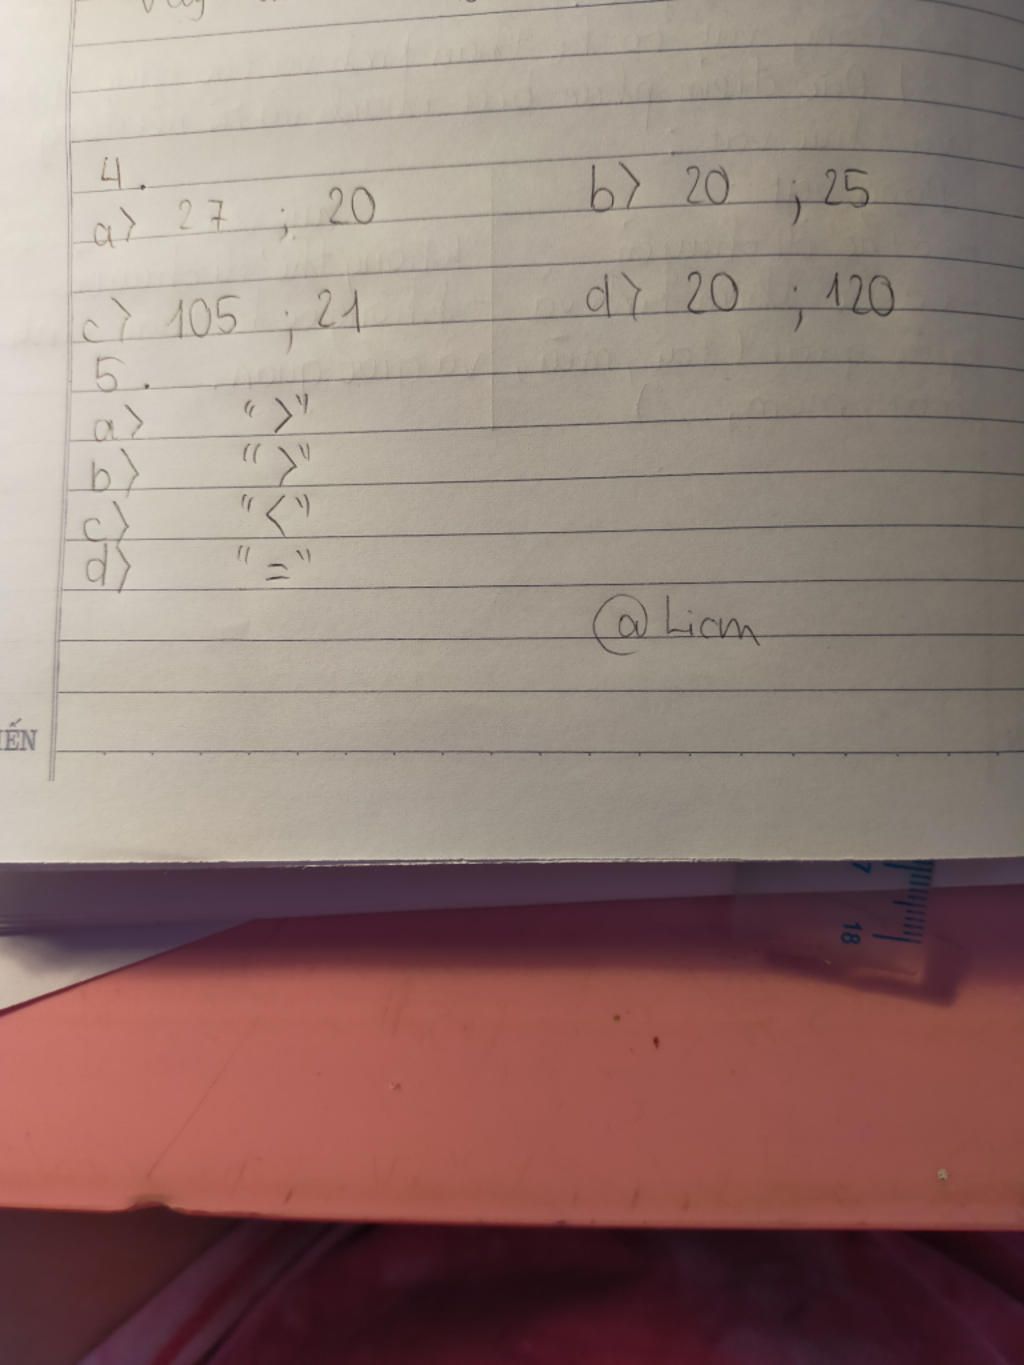 4.
a) 27 ; 20 b) 20 ; 25
c) 105 ; 21 d) 20 ; 120
5.
a) ">"
b) ">"
c) "<"
d) "="
@Liam
ẾN
7
18